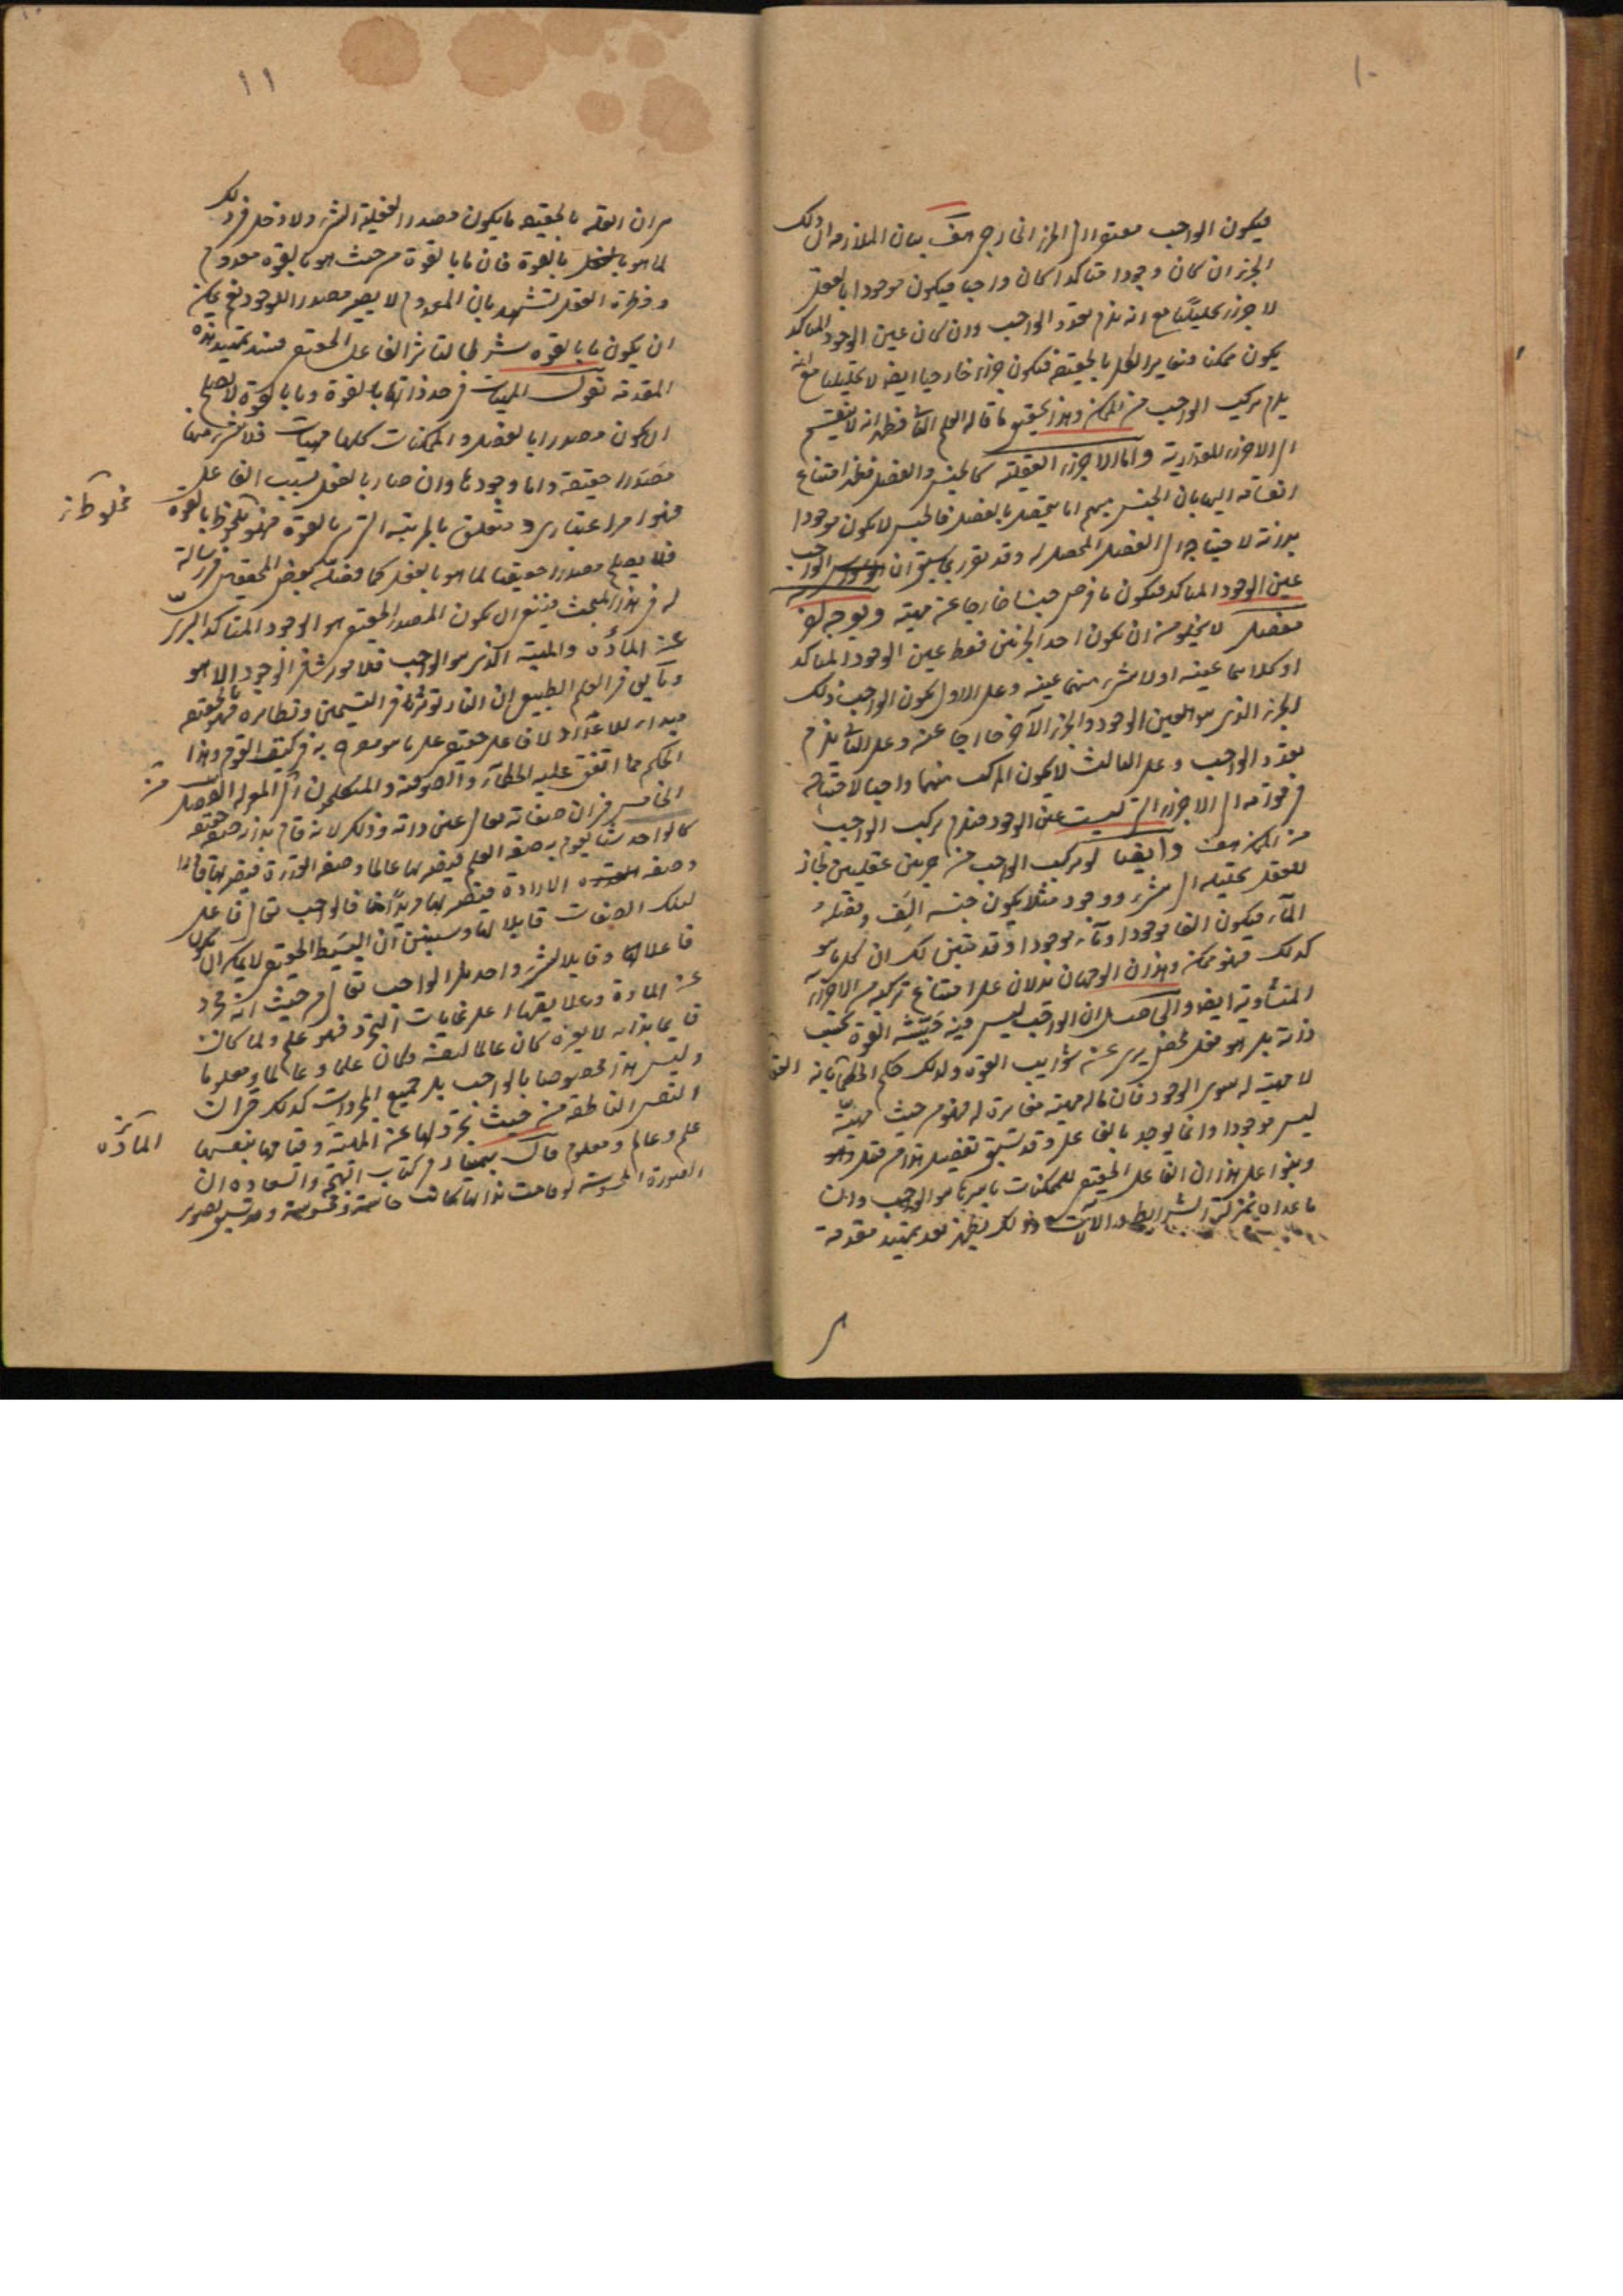 ١٠
فيكون الواجب مفتقرا الى الجزء الخارجى هف بيان الملازمة ان ذلك
الجزء ان كان وجودا متاكدا كان واجبا فيكون موجودا بالفعل
لا جزءا تحليليا مع انه يلزم تعدد الواجب وان كان غير الوجود المتاكد
يكون ممكنا ومغايرا للكل بالحقيقة فيكون جزءا خارجيا ايضا لا تحليليا مع انه
يلزم تركيب الواجب من الممكن وهذا تحقيق ما قاله المعلم الثانى فظهر انه لا ينقسم
الى الاجزاء المقدارية واما الاجزاء العقلية كالجنس والفصل فنقول امتناع
انقسامه اليها بان الجنس مبهم انما يتحصل بالفصل فالجنس لا يكون موجودا
بذاته لاحتياجه الى الفصل المحصل له وقد تقرر بما سبق ان الواجب
عين الوجود المتاكد فيكون ما فرض جنسا خارجا عن مهيته وبوجه اخر
مفصل لا يخلو من ان يكون احد الجزئين فقط عين الوجود المتاكد
او كلاهما عينه او لا شىء منهما عينه وعلى الاول يكون الواجب ذلك
الجزء الذى هو عين الوجود والجزء الآخر خارجا عنه وعلى الثانى يلزم
تعدد الواجب وعلى الثالث لا يكون المركب منهما واجبا لاحتياجه
فى قوامه الى الاجزاء التى ليست عين الوجود فيلزم تركب الواجب
من الممكن هف وايضا لو تركب الواجب من جزئين عقليين لجاز
للعقل تحليله الى شىء ووجود مثلا يكون جنسه الف وفصله
الباء فيكون الفا موجودا وباء موجودا وقد تبين لك ان كل ما هو
كذلك فهو ممكن وهذان الوجهان يدلان على امتناع تركبه من الاجزاء
المتساوية ايضا والحاصل ان الواجب ليس فيه حيثية القوة بحسب
ذاته بل هو فعل محض برى عن شوايب القوة ولذلك حكم الحكماء بانه
لا مهية له سوى الوجود فان ما له مهية مغايرة له فهو من حيث مهيته
ليس موجودا وانما يوجد بالفاعل وقد سبق تفصيل هذا
وبنوا على هذا ان الفاعل الحقيقى للممكنات باسرها هو الواجب وان
ما عداه بمنزلة الشرايط والآلات وذلك يظهر بعد تمهيد مقدمة
١١
هى ان العلة بالحقيقة ما يكون مصدرا لفعلية الشىء ولا دخل فى ذلك
لما هو بالقوة فان ما بالقوة من حيث هو بالقوة معدوم
وفطرة العقل تشهد بان المعدوم لا يصير مصدرا للوجود نعم يمكن
ان يكون ما بالقوة شرطا لتاثير الفاعل الحقيقى فبعد تمهيد هذه
المقدمة نقول المهيات فى حد ذاتها بالقوة وما بالقوة لا يصلح
ان يكون مصدرا بالفعل والممكنات كلها مهيات فلا شىء منها
مصدرا حقيقة واما وجودها وان صار بالفعل بسبب الفاعل
فهو امر اعتبارى متعلق بالمهية التى بالقوة فهو مخلوط بالقوة
فلا يصلح مصدرا حقيقيا لما هو بالفعل كما فصله بعض المحققين فى رسالة
له فى هذا المبحث فينبغى ان يكون المصدر الحقيقى هو الوجود المتاكد البرى
عن المادة والمهية الذى هو الواجب فلا مؤثر فى الوجود الا هو
وما يق فى العلم الطبيعى ان النار تؤثر فى التسخين ونظايره فهو بالحقيقة
مبداء للاعداد لا فاعل حقيقى على ما هو معروف به فى كتب القوم وهذا
الحكم مما اتفق عليه الحكماء والصوفية والمتكلمون الفصل
الخامس فى ان صفاته تعالى عين ذاته وذلك لانه قام بذاته صفة حقيقية
كالواحد منا يقوم به صفة العلم فيصير بها عالما وصفة القدرة فيصير بها قادرا
وصفة الارادة فيصير بها مريدا فالواجب تعالى فاعل
لتلك الصفات قابلا لها وسيتبين ان البسيط الحقيقى لا يمكن ان يكون
فاعلا وقابلا لشىء واحد بل الواجب تعالى من حيث انه مجرد
عن المادة وعلايقها اعلى غايات التجرد فهو علم ولما كان
قايما بذاته لا بغيره كان عالما لنفسه فكان علما وعالما ومعلوما
وليس هذا مخصوصا بالواجب بل جميع المجردات كذلك حتى ان
النفس الناطقة من حيث تجردها عن المادة وقيامها بنفسها
علم وعالم ومعلوم قال بهمنيار فى كتاب البهجة والسعادة ان
الصورة المحسوسة لو قامت بذاتها كانت حاسة ومحسوسة
مخلوط
المادة